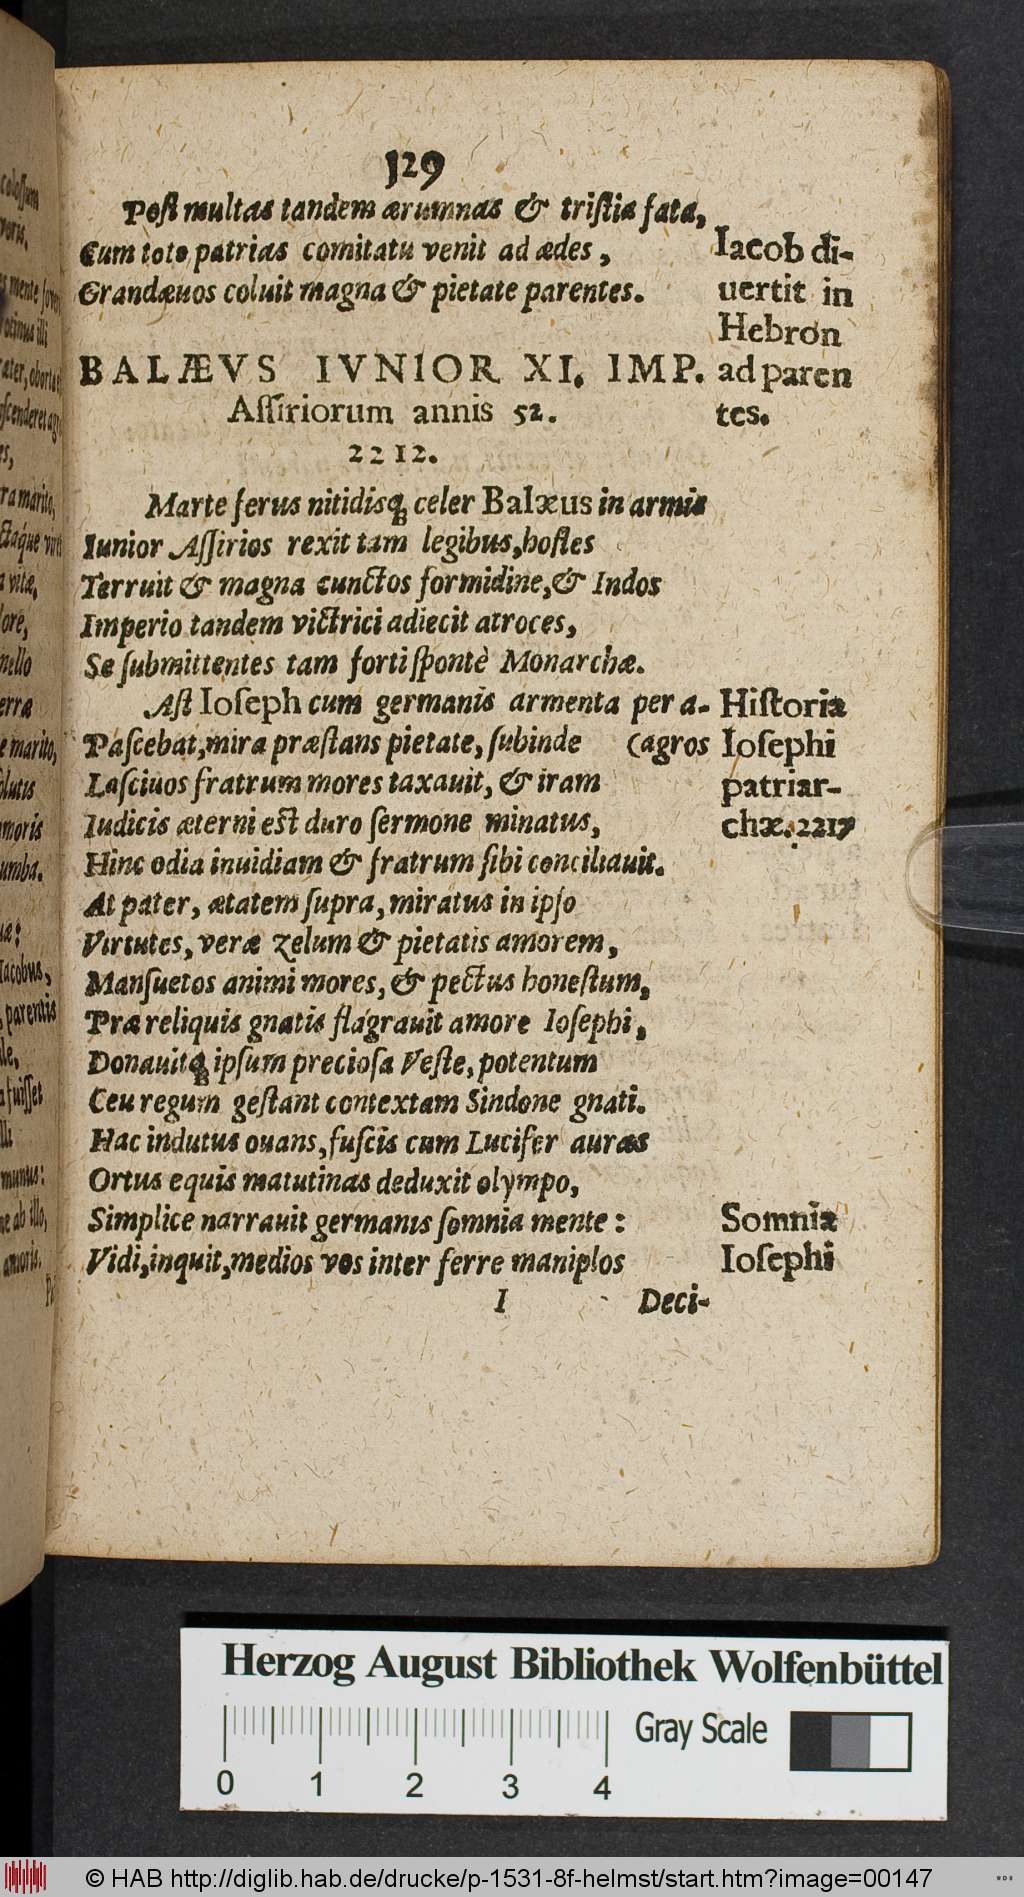 129
Poſt multas tandem ærumnas & triſtia fata,
Cum toto patrias comitatu venit ad ædes,
Grandævos coluit magna & pietate parentes.
Iacob di-
uertit in
Hebron
ad paren
tes.
BALÆVS IVNIOR XI. IMP.
Aſſiriorum annis 52.
2212.
Marte ferus nitidisq; celer Balæus in armis
Iunior Aſſirios rexit tam legibus, hoſtes
Terruit & magna cunctos formidine, & Indos
Imperio tandem victrici adiecit atroces,
Se ſubmittentes tam forti ſpontè Monarchæ.
Aſt Ioſeph cum germanis armenta per a-
Paſcebat, mira præſtans pietate, ſubinde (agros
Laſciuos fratrum mores taxauit, & iram
Iudicis æterni est duro ſermone minatus,
Hinc odia inuidiam & fratrum ſibi conciliauit.
At pater, ætatem ſupra, miratus in ipſo
Virtutes, veræ zelum & pietatis amorem,
Manſuetos animi mores, & pectus honeſtum,
Præ reliquis gnatis flagrauit amore Ioſephi,
Donauitq; ipſum precioſa Veſte, potentum
Ceu regum geſtant contextam Sindone gnati.
Hac indutus ouans, fuſcis cum Lucifer auras
Ortus equis matutinas deduxit olympo,
Simplice narrauit germanis ſomnia mente:
Vidi, inquit, medios vos inter ferre maniplos
Hiſtoria
Ioſephi
patriar-
chæ. 2217
Somnia
Ioſephi
I Deci-
Herzog August Bibliothek Wolfenbüttel
Gray Scale
0 1 2 3 4
© HAB http://diglib.hab.de/drucke/p-1531-8f-helmst/start.htm?image=00147